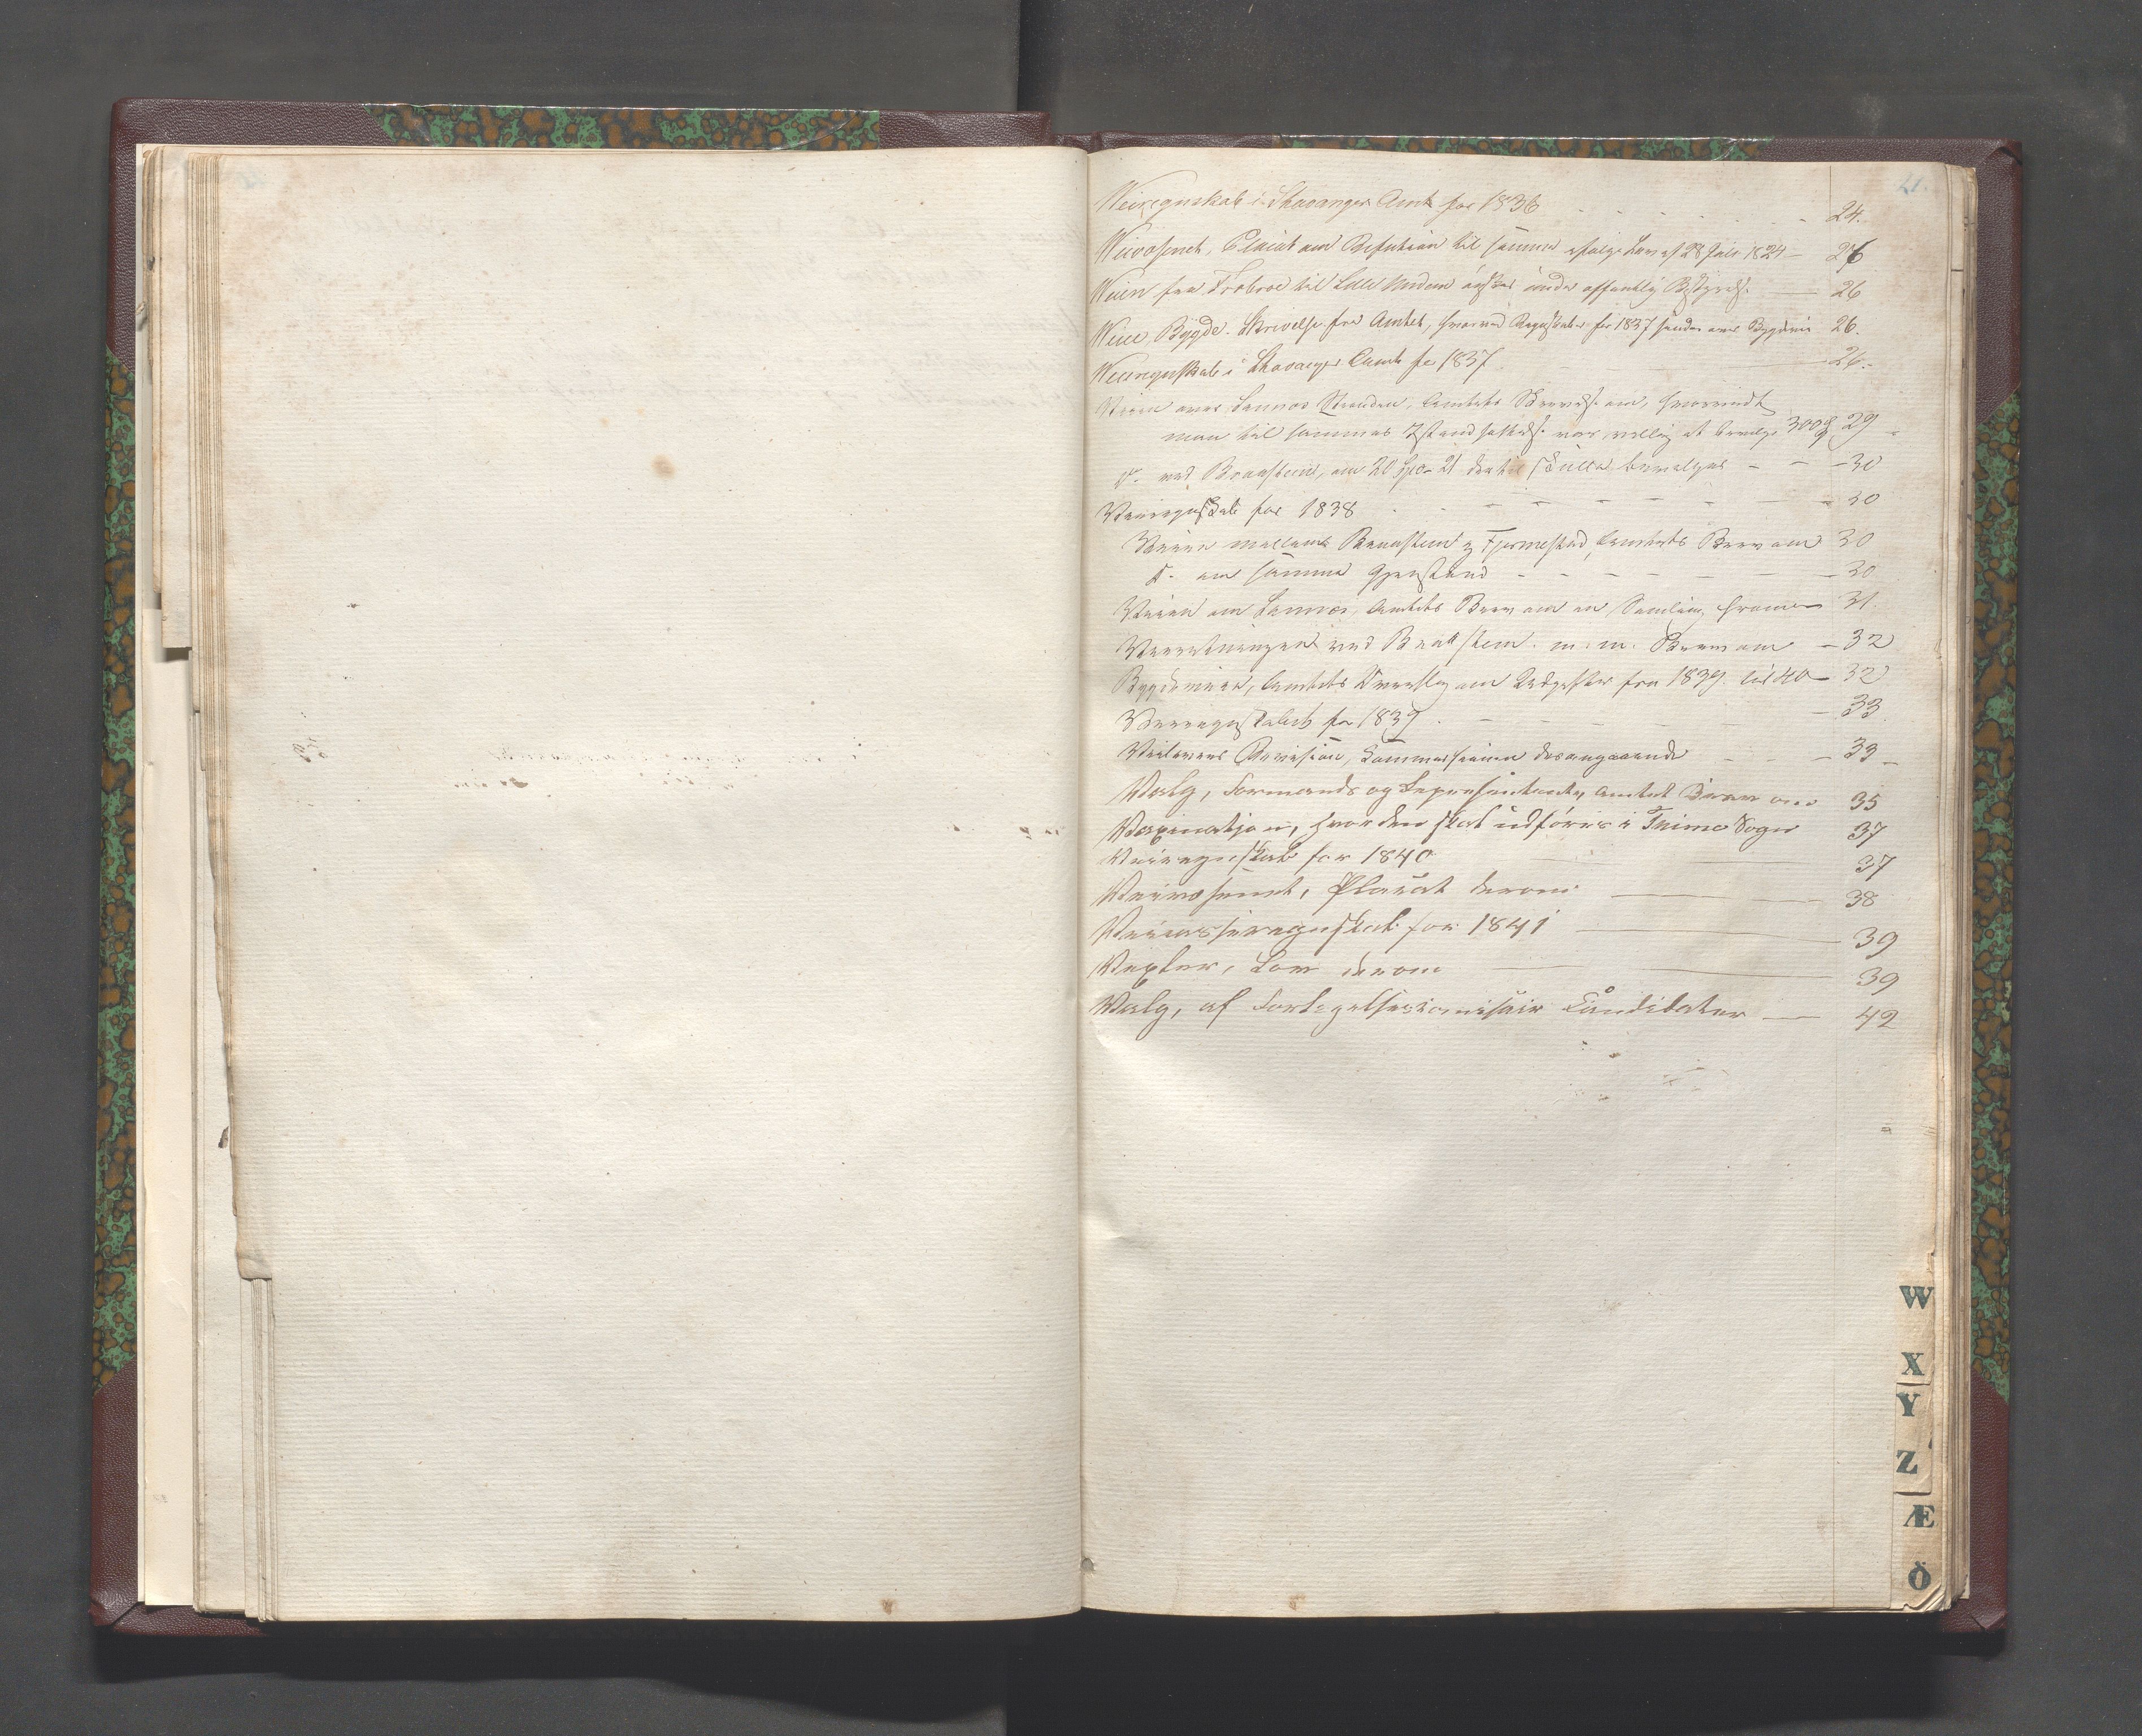 21.
Veiregnskab i Stavanger Amt for 1836 - - - - - - 24.
Veivæsenet, Placat om Resolution til samme ifølge Lov af 28 Juli 1824 - 26
Veien fra Frøbroe til Lille under offentlig Bestyrelse - 26
Veie, Bygde. Skrivelse fra Amtet, hvorved Regnskabet for 1837 sendes over Bygdeveie 26.
Veiregnskab i Stavanger Amt for 1837. - 26.
Veien over Stranden, Amtets om, hvorvidt
man til sammes Istandsættelse var villig at bevilge 300 29 -
d. ved Braasteen, om 20 Spd. dertil skulle bevilges - - - 30
Veiregnskab for 1838 - - - - - - 30
Veien mellem Braasteen og Fjermestad, Amtets Brev om 30
d. om samme Gjenstand - - - - - - - 30
Veien om Amtets Brev om en Samling 31.
ved Braasteen. m. m. Brev om - 32
Bygdeveien, Amtets Overslag om Udgifter fra 1839 til 40 - 32
Veiregnskabet for 1839. - - - - - - 33.
Veilovens Revision, Commissionen desangaaende - - - 33 -
Valg, Formænds og Repræsentanter, Amtets Brev om 35
Vaxination, hvor den skal udføres i Thime Sogn 37
Veiregnskab for 1840 37
Veivæsenet, Placat derom 38
Veivæsensregnskab for 1841 39
Vexler, Lov derom 39
Valg, af Forligelsescomissair Candidater - 42
W
X
Y
Z
Æ
Ö